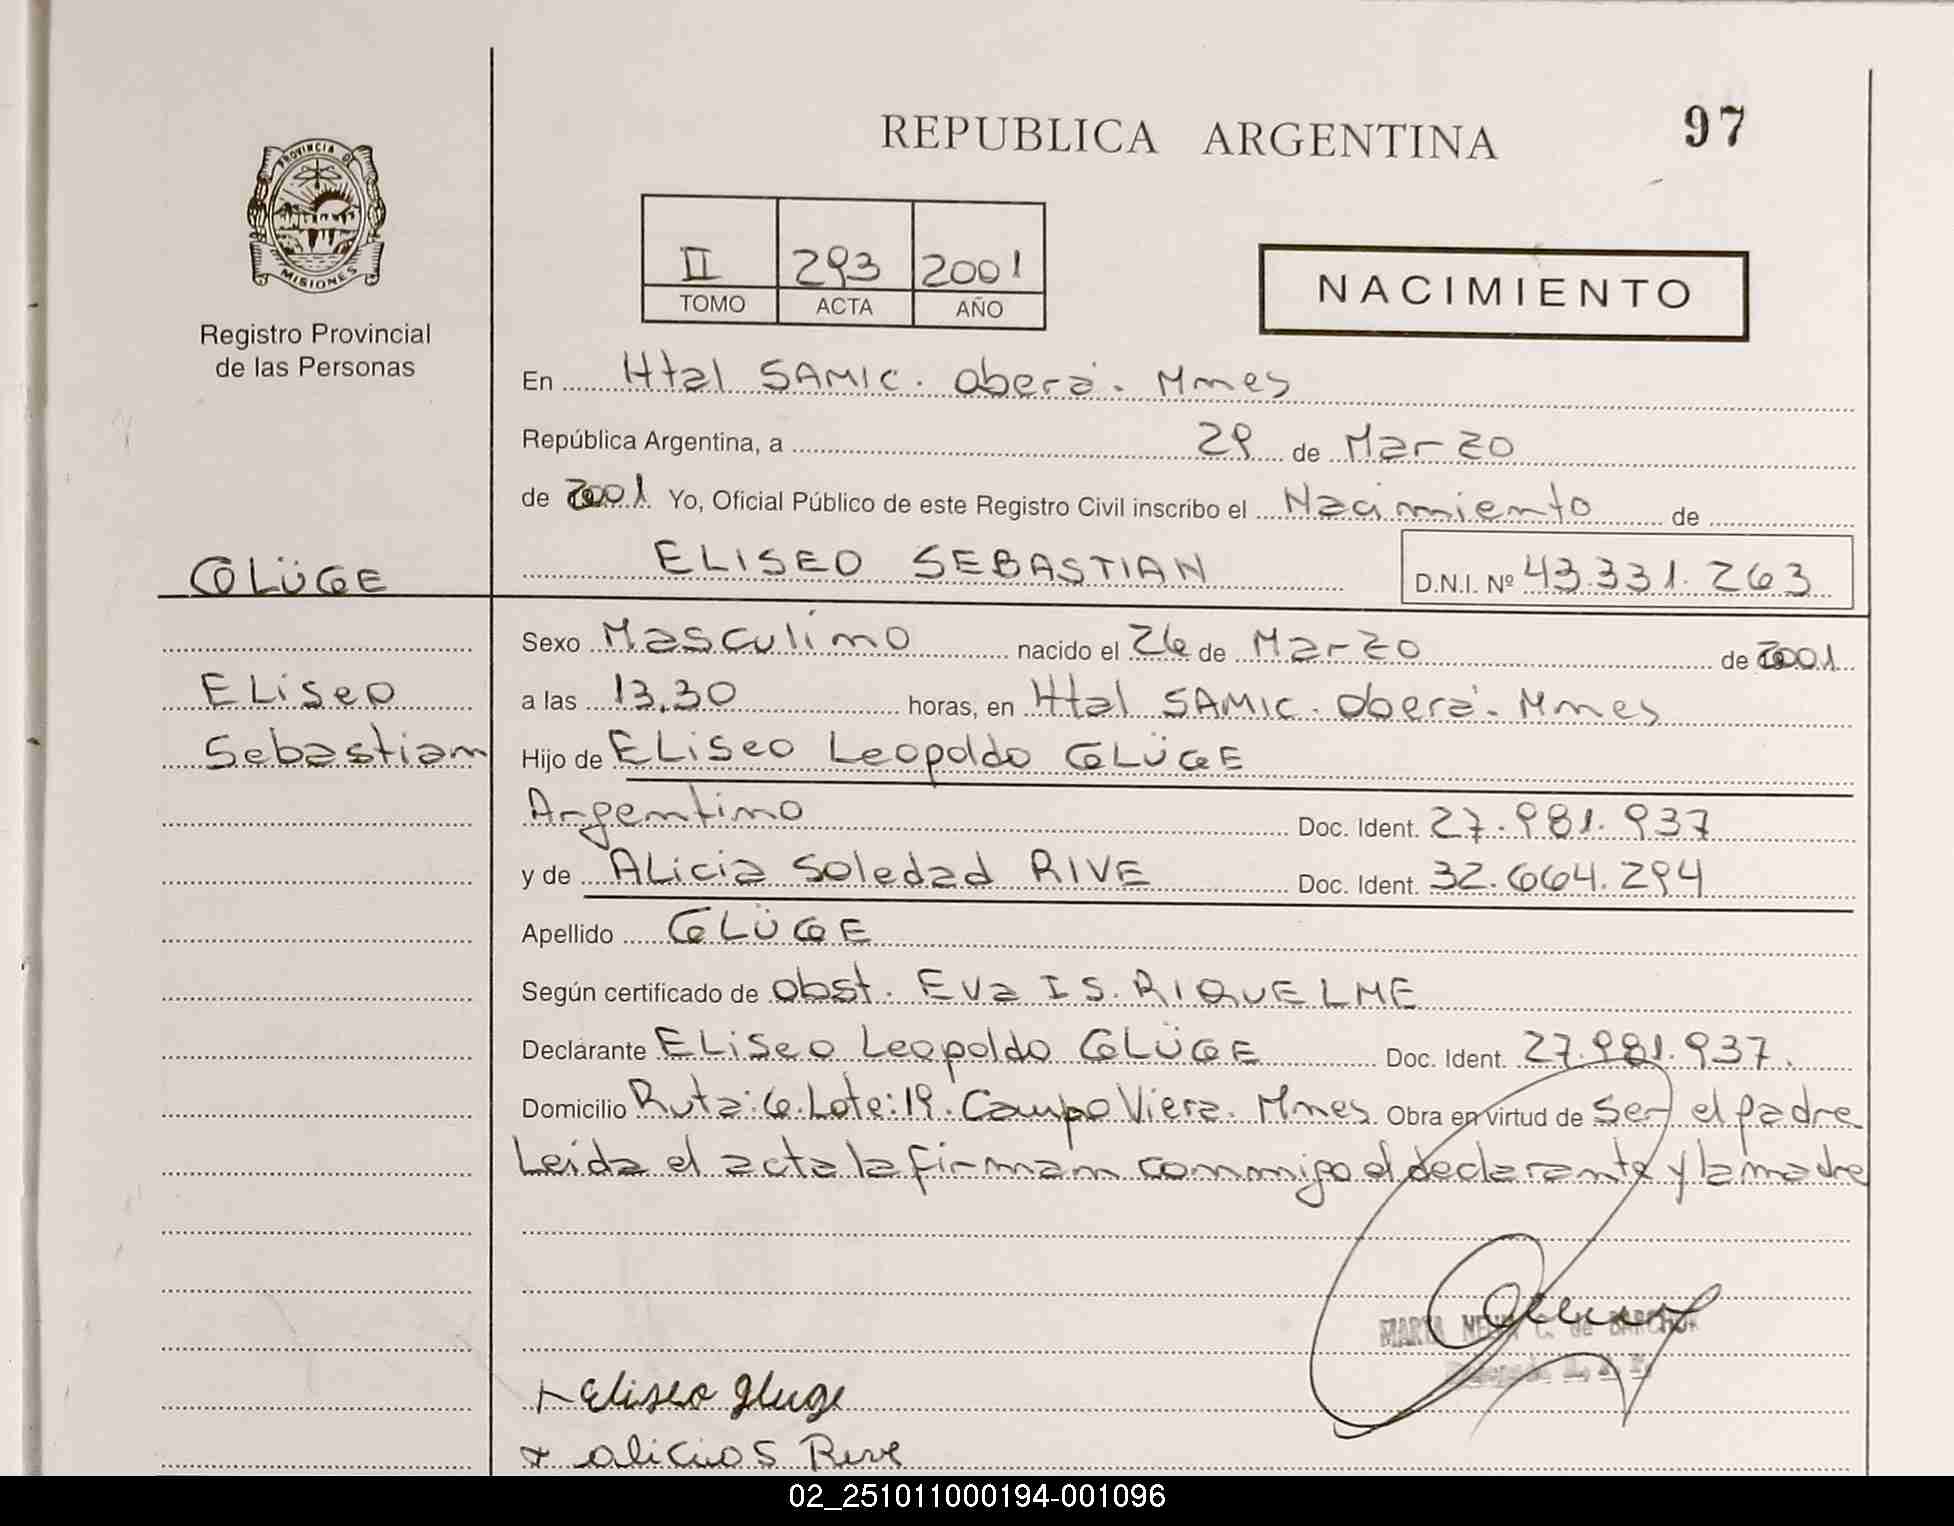 REPUBLICA ARGENTINA
97
PROVINCIA DE
MISIONES
Registro Provincial
de las Personas
II 293 2001
TOMO ACTA AÑO
NACIMIENTO
En Htal SAMIC. Oberá. Mnes
República Argentina, a 29 de Marzo
de 2001 Yo, Oficial Público de este Registro Civil inscribo el Nacimiento de
GLÜGE
ELISEO SEBASTIAN D.N.I. Nº 43.331.263
Sexo Masculino nacido el 26 de Marzo de 2001
Eliseo
a las 13.30 horas, en Htal SAMIC. Oberá. Mnes
Sebastian
Hijo de Eliseo Leopoldo GLÜGE
Argentino Doc. Ident. 27.981.937
y de Alicia Soledad RIVE Doc. Ident. 32.664.294
Apellido GLÜGE
Según certificado de obst. Eva IS. RIQUELME
Declarante Eliseo Leopoldo GLÜGE Doc. Ident. 27.981.937.
Domicilio Ruta:6.Lote:19.Campo Viera. Mnes. Obra en virtud de ser el padre
Leida el acta la firman conmigo el declarante y la madre
MARTA C. de BARCHUK
Eliseo Gluge
Alicia S Rive
02_251011000194-001096